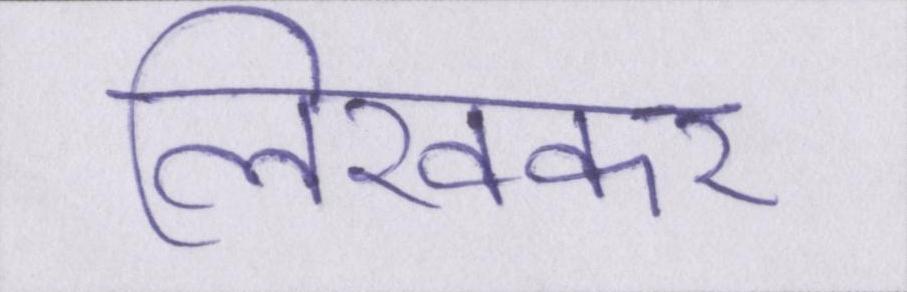 लिखकर